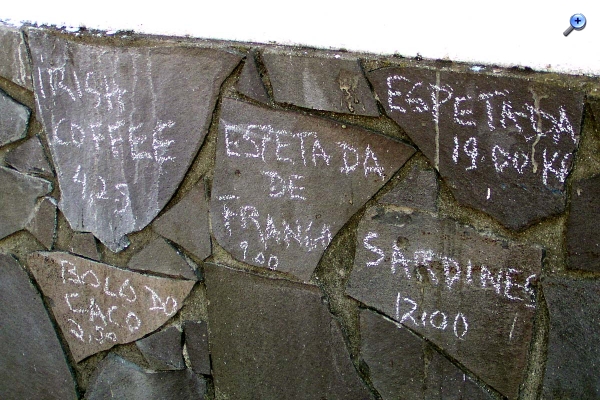 IRISH
COFFEE
4,23
ESPETADA
DE
FRANGA
9.00
ESPETADA
19.00
BOLO DO
CACO
2,50
SARDINES
12:00